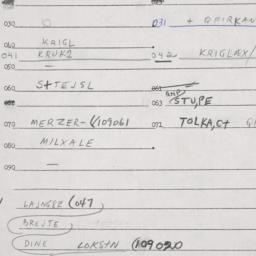 030 031 + QFIRKAN
040 KRIGL
041 KRUK2 042 KRIGLÆX/
050 —
060 S++EJSL
063 STUPE
070 MERZER- 109061 072 TOLKA,C+
080 MILXALE
090 —
LAJNGRE (047
BREJTE
DINE LOKS+N (109020